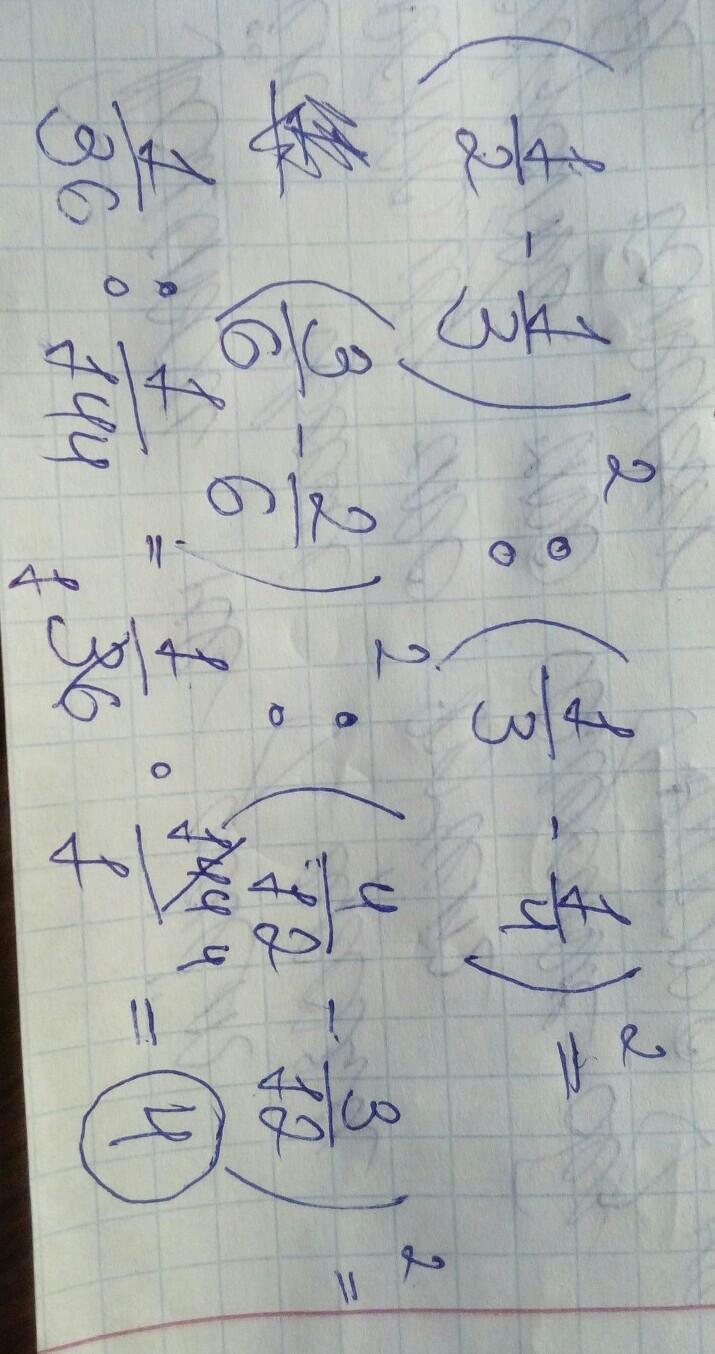 (1/2 - 1/3)² : (1/3 - 1/4)² =
(3/6 - 2/6)² : (4/12 - 3/12)² =
1/36 : 1/144 = 1/36 1 · 144 4/1 = 4